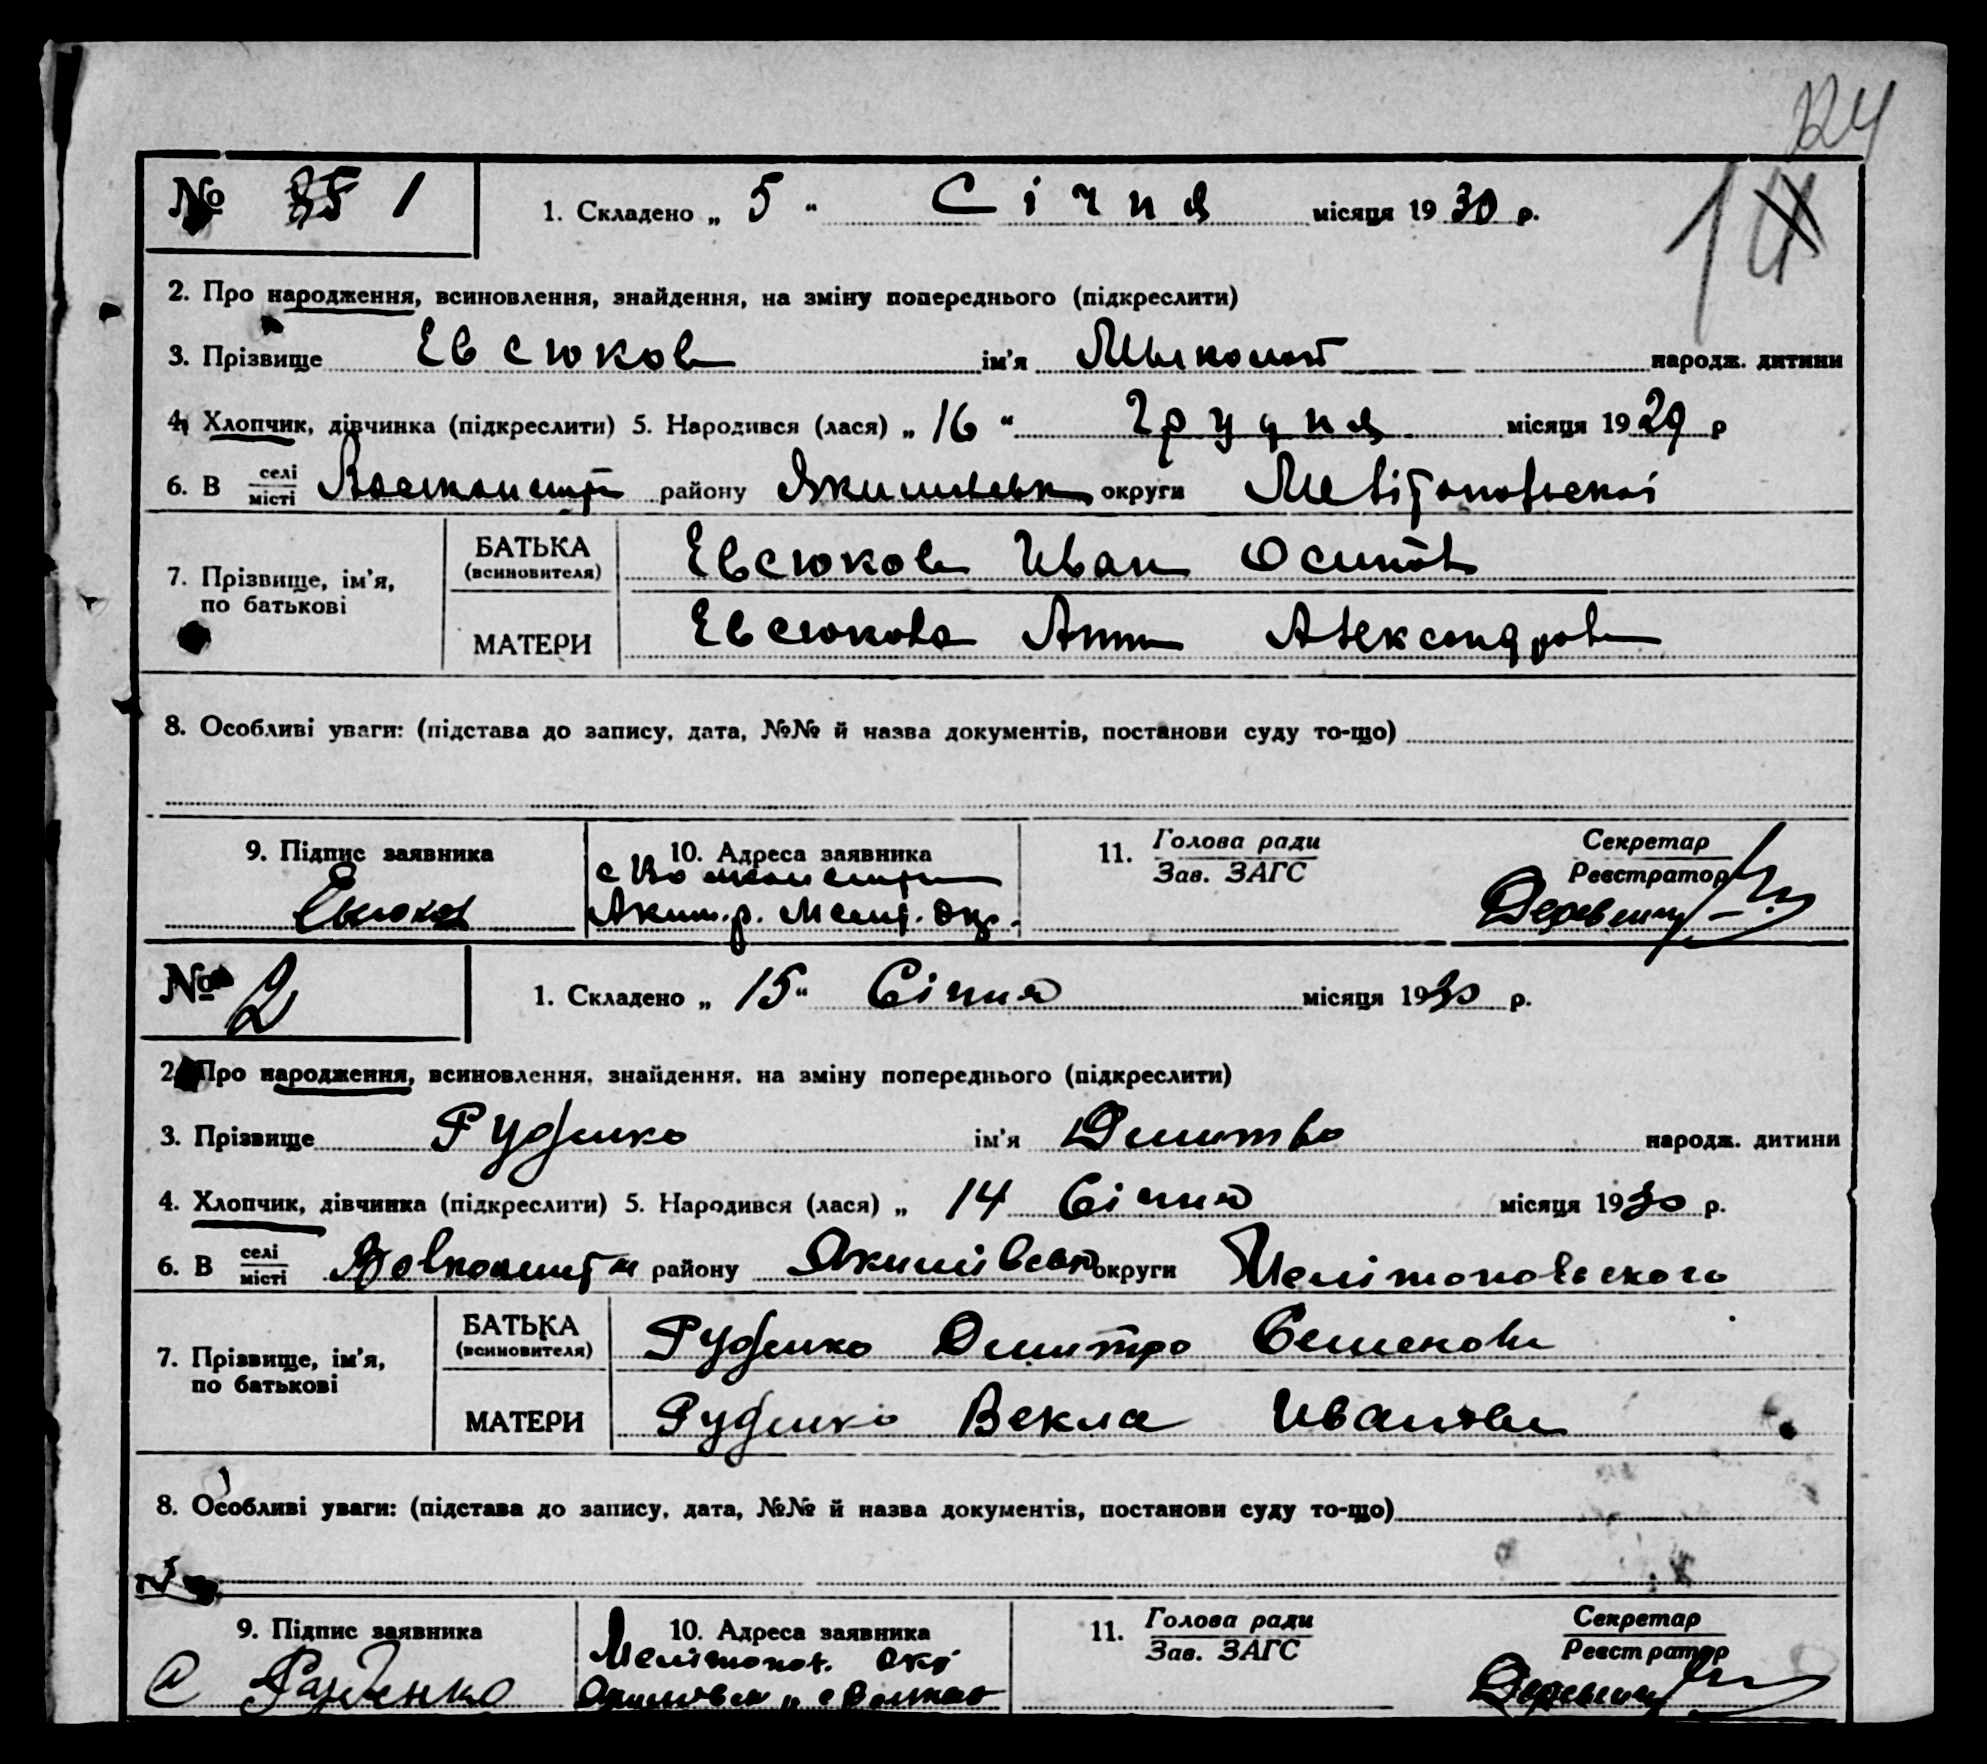 124
14
№ 1
1. Складено „ 5 “ Січня місяця 1930 р.
2. Про народження, всиновлення, знайдення, на зміну попереднього (підкреслити)
3. Прізвище Евсюков ім'я народж. дитини
4. Хлопчик, дівчинка (підкреслити) 5. Народився (лася) „ 16 “ Грудня місяця 1929 р
6. В селі/місті району округи
7. Прізвище, ім'я, по батькові
БАТЬКА (всиновителя) Евсюков Иван Осипов
МАТЕРИ Евсюкова Анна Александров
8. Особливі уваги: (підстава до запису, дата, №№ й назва документів, постанови суду то-що)
9. Підпис заявника
10. Адреса заявника
11. Голова ради / Зав. ЗАГС
Секретар / Реєстратор
Евсюков
Аким. р. Мелит. окр.
№ 2
1. Складено „ 15 “ Січня місяця 1930 р.
2. Про народження, всиновлення, знайдення, на зміну попереднього (підкреслити)
3. Прізвище Руденко ім'я народж. дитини
4. Хлопчик, дівчинка (підкреслити) 5. Народився (лася) „ 14 Січня місяця 1930 р.
6. В селі/місті району округи Мелітопольского
7. Прізвище, ім'я, по батькові
БАТЬКА (всиновителя) Руденко Дмитро Семенови
МАТЕРИ Руденко Векла Иванови
8. Особливі уваги: (підстава до запису, дата, №№ й назва документів, постанови суду то-що)
9. Підпис заявника
10. Адреса заявника
11. Голова ради / Зав. ЗАГС
Секретар / Реєстратор
Мелітопол. окр